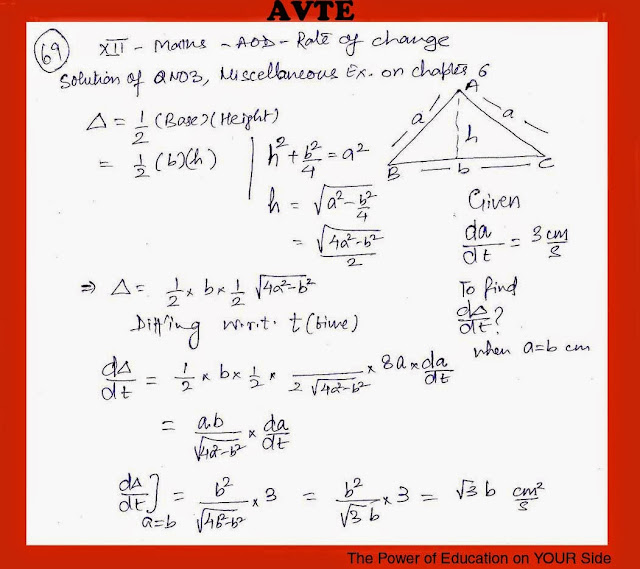 AVTE
69 XII - Maths - AOD - Rate of change
Solution of QNO3, Miscellaneous Ex. on chapter 6
Δ = 1/2 (Base)(Height)
= 1/2 (b)(h)
h² + b²/4 = a²
h = √(a² - b²/4)
= √(4a² - b²)/2
A
a a
h
B b C
Given
da/dt = 3 cm/s
To find
dΔ/dt?
when a=b cm
⇒ Δ = 1/2 × b × 1/2 √(4a²-b²)
Diff'ing w.r.t. t (time)
dΔ/dt = 1/2 × b × 1/2 × /2√(4a²-b²) × 8a × da/dt
= ab/√(4a²-b²) × da/dt
dΔ/dt]a=b = b²/√(4b²-b²) × 3 = b²/√3 b × 3 = √3 b cm²/s
The Power of Education on YOUR Side